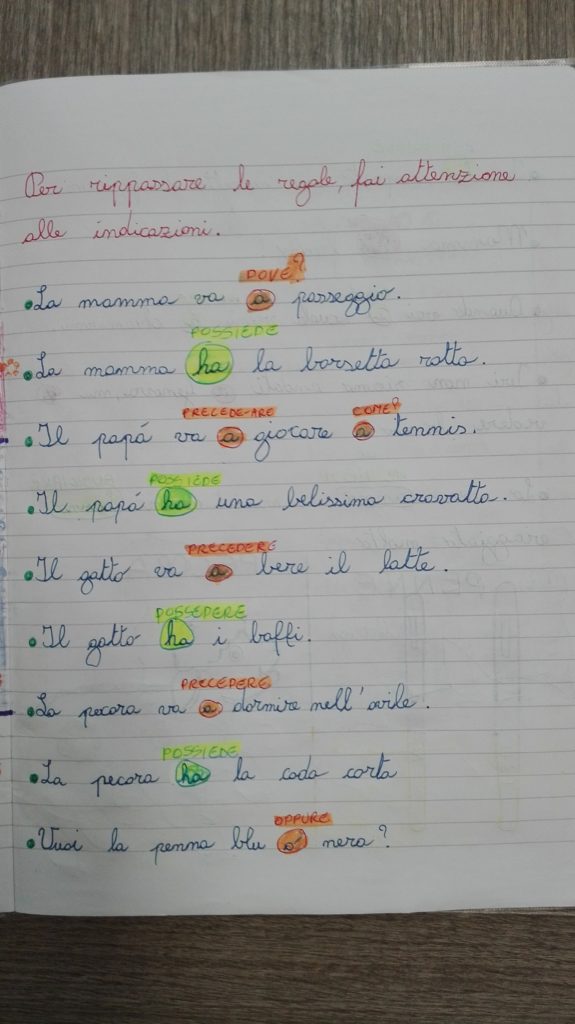 Per rippassare le regole, fai attenzione
alle indicazioni.
DOVE?
• La mamma va a passeggio.
POSSIEDE
• La mamma ha la borsetta rotta.
PRECEDE-ARE COME?
• Il papá va a giocare a tennis.
POSSIEDE
• Il papá ha una belissima cravatta.
PRECEDERE
• Il gatto va a bere il latte.
POSSEDERE
• Il gatto ha i baffi.
PRECEDERE
• La pecora va a dormire nell'ovile.
POSSIEDE
• La pecora ha la coda corta
OPPURE
• Vuoi la penna blu o nera?